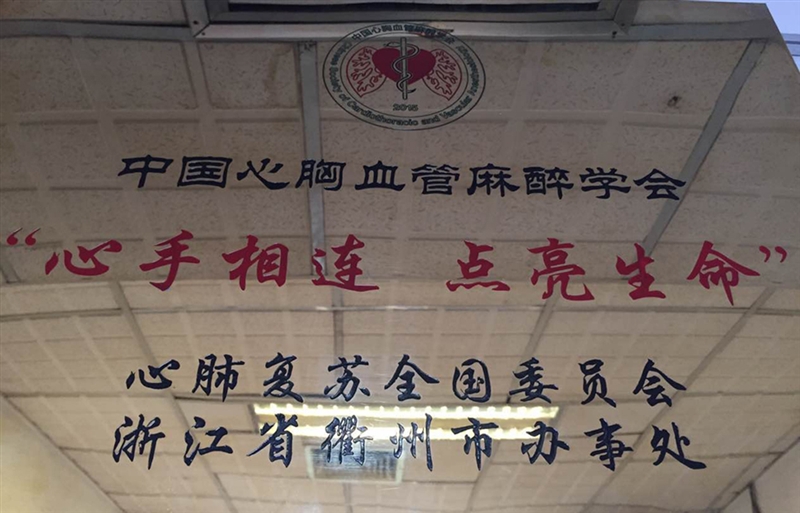 中国心胸血管麻醉学会
Society of Cardiothoracic and Vascular Anesthesiology
2015
中国心胸血管麻醉学会
“心手相连 点亮生命”
心肺复苏全国委员会
浙江省衢州市办事处